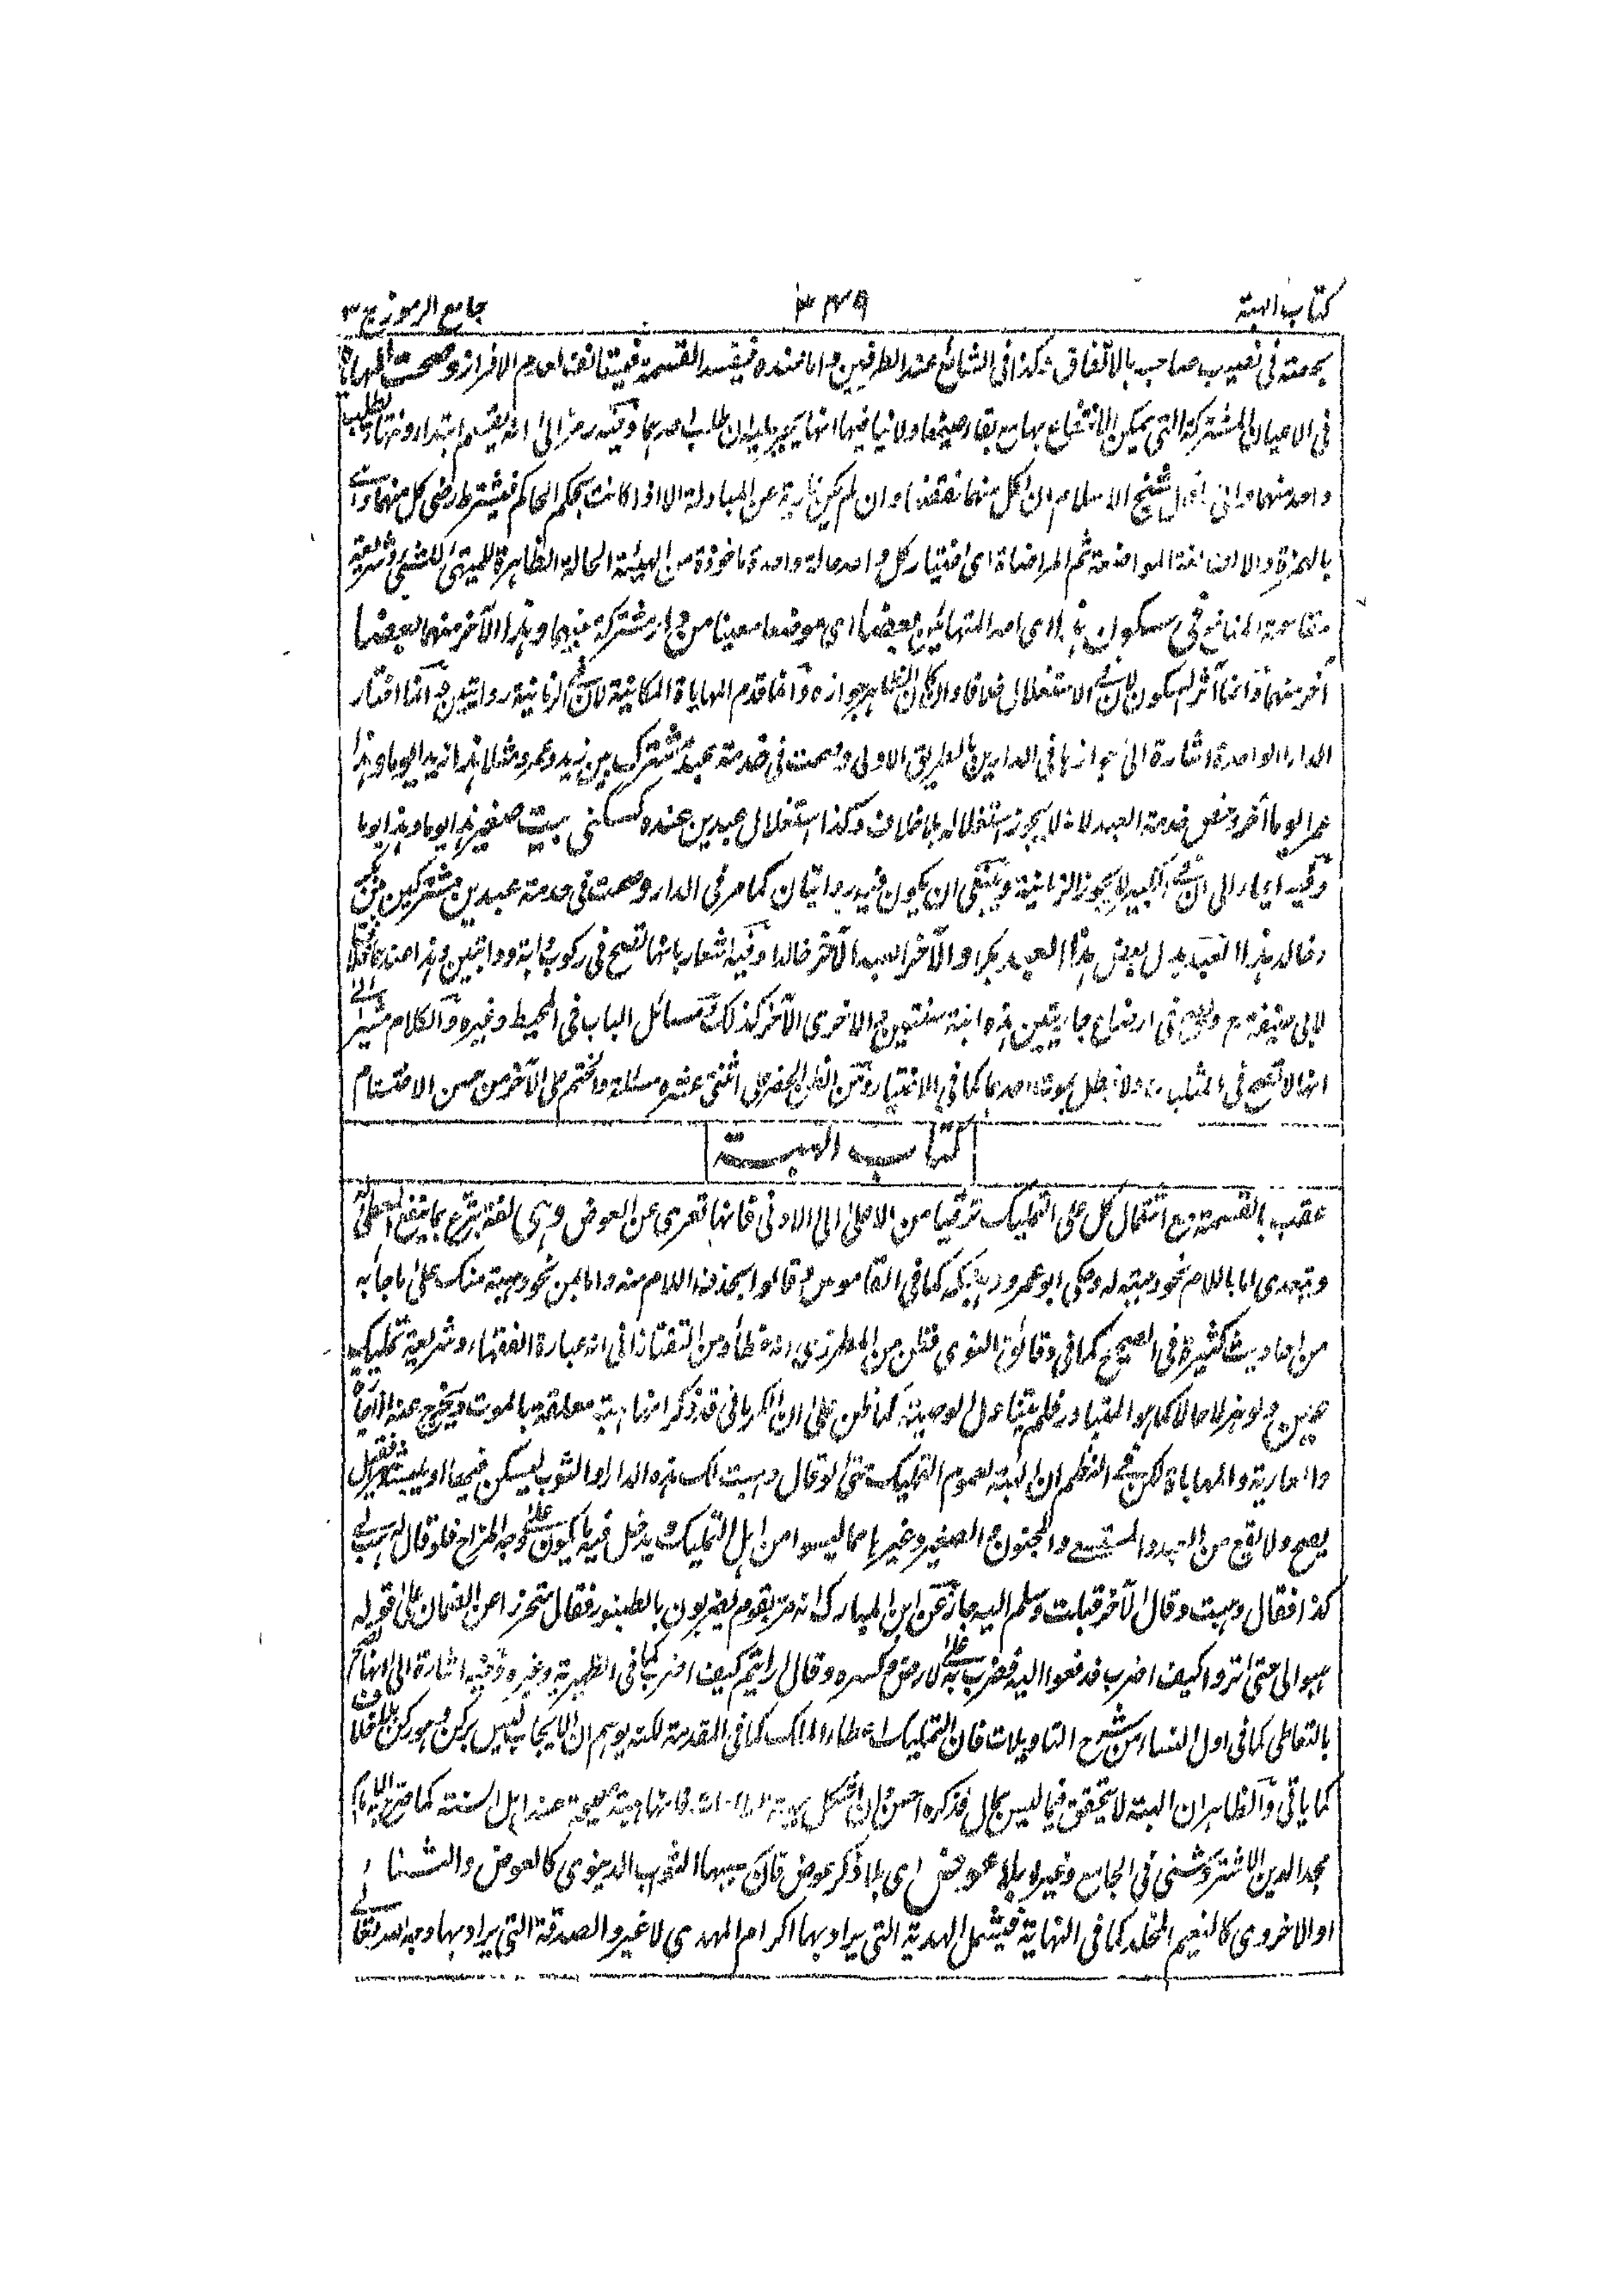 كتاب الهبة ٣٤٩ جامع الرموز ج ٣
بحصته في نصيب صاحبه بالاتفاق وكذا في الشائع عند الطرفين واما عنده فيفسد القسمة فيستانف لعدم الافراز وصحت المهاياة
في الاعيان المشتركة التي يمكن الانتفاع بها مع بقاء عينها ولا ينافيها انها يجبر عليها ان طلب احدهما وفيه رمز الى انه يقسم ابتداء ونهاية بطلب
واحد منهما شيخ الاسلام ان لكل منهما نقضها وان لم يكن عارية عن المبادلة الا اذا كانت بحكم الحاكم فيشترط رضى كل منهما وهي
بالهمزة والالف لغة المواضعة ثم المراضاة اي اختيار كل واحد حالة واحدة ماخوذة من الهيئة الحالة الظاهرة للمتهيئ للشئ وشريعة
مقاسمة المنافع في سكون هذا اي احد المتهائين بعضا اي موضعا معينا من دار مشتركة بينهما وهذا الآخر منهما بعضا
آخر منهما وانما آثر السكون لان في الاستغلال خلافا وان كان الظاهر جوازه وانما قدم المهاياة المكانية لان في الزمانية روايتين وانما اختار
الدار الواحدة اشارة الى جوازها في الدارين بالطريق الاولى وصحت في خدمة عبد مشترك بين زيد وعمرو مثلا هذا زيدا يوما وهذا
عمرا يوما آخر وخص خدمة العبد لانه لا يجوز استغلاله بلا خلاف وكذا استغلال عبدين عنده كسكنى بيت صغير هذا يوما وهذا يوما
وفيه ايماء الى ان في الكبير لا يجوز الزمانية وينبغي ان يكون فيه روايتان كما مر في الدار وصحت في خدمة عبدين مشتركين بين بكر
وخالد هذا العبد هذا العبد بكرا والآخر العبد الآخر خالدا وفيه اشعار بانها تصح في ركوب دابة ودابتين وهذا عندهما خلافا
لابي حنيفة رح وتصح في ارضاع جاريتين هذه ابنه سنتين والاخرى الآخر كذلك ومسائل الباب في المحيط وغيره والكلام مشير الى
انها لا تصح في المثليات ولا تبطل بموت احدهما كما في الاختيار ومن الظن الحصر على اثنتي عشرة مسئلة والختم على الآخر من حسن الاختتام
كتاب الهبة
عقب بالقسمة مع اشتمال كل على التمليك ترقيا من الاعلى الى الادنى فانها تعرى عن العوض وهي لغة تبرع بما ينفع المعطى له
ويتعدى اما باللام نحو وهبته له وحكى ابو عمرو وهبتكه كما في القاموس وقالوا بحذف اللام منه واما بمن نحو وهبته منك على ما جاء به
من احاديث كثيرة في الصحيح كما في دقائق النووي فظن من المطرزي انه خطأ ومن التفتازاني انه عبارة الفقهاء وشريعة تمليك
عين ولو هزلا حالا كما هو المتبادر فلم يتناول الوصية كما ظن على ان الكرماني قد ذكر انها هبة معلقة بالموت ويخرج عنه الاباحة
والعارية والمهاباة لكن في النظم ان الهبة لعموم التمليك حتى لو قال وهبت لك هذه الدار او الثوب ليسكن فيها او يلبسه شهرا فقبل
يصح ولا تقع من العبد والمجنون والصغير وغيرها مما ليسوا من اهل التمليك ويدخل فيه ما يكون على وجه المزاح فلو قال هب لي
كذا فقال وهبت وقال الآخر قبلت وسلم اليه جاز عن ابن المبارك انه مر بقوم يضربون بالطنبور فقال متحرزا من الضمان على قوله
هبوا لي حتى اتروا كيف اضرب فدفعوا اليه فضرب به على الارض وكسره وقال رايتم كيف اضرب كما في الظهيرية وغيره وفيه اشارة الى انها تصح
بالتعاطي كما في اول النساء من شرح التاويلات فان التمليك اعطاء الملك كما في المقدمة لكنه يوهم ان الايجاب ليس بركن وهو ركن بلا خلاف
كما ياتي والظاهر ان الهبة لا تتحقق فيما ليس بمال فذكره احسن فانها هبة صحيحة عند اهل السنة كما صرح به الامام
مجد الدين الاشتروشني في الجامع وغيره بلا عوض اي بلا ذكر عوض فان سببها الثواب الدنيوي كالعوض والثناء
او الاخروي كالنعيم المخلد كما في النهاية فيشمل الهدية التي يراد بها اكرام المهدي لا غير والصدقة التي يراد بها وجه الله تعالى